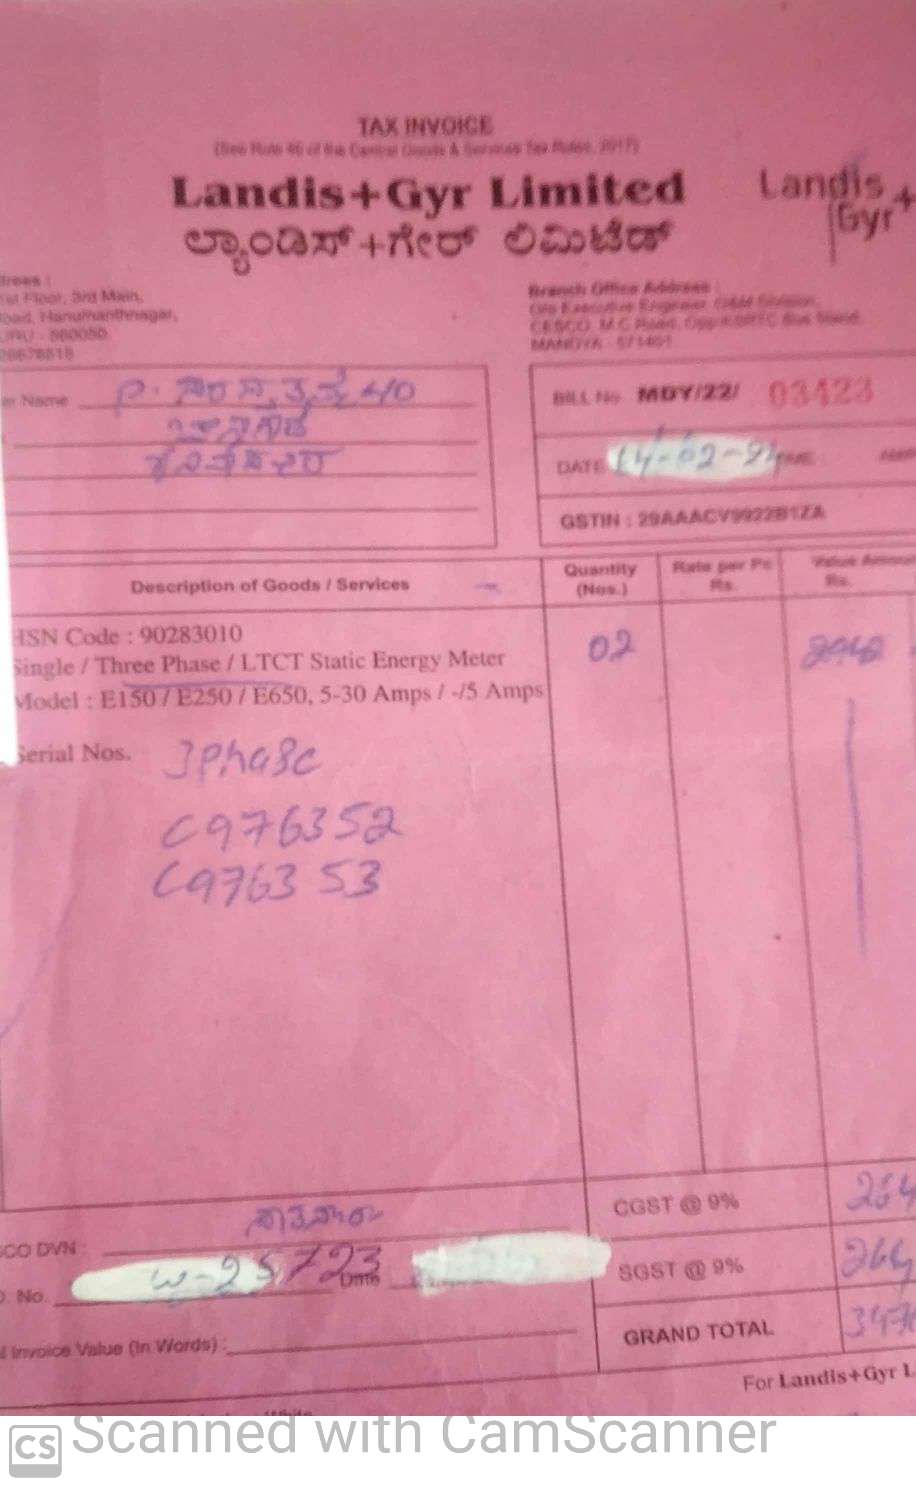 TAX INVOICE
(See Rule 46 of the Central Goods & Services Tax Rules, 2017)
Landis+Gyr Limited
Landis
Gyr+
ಲ್ಯಾಂಡಿಸ್+ಗೇರ್ ಲಿಮಿಟೆಡ್
1st Floor, 3rd Main,
Hanumanthnagar,
560050
26678818
Branch Office Address :
O/o Executive Engineer O&M Division,
CESCO, M.C Road, Opp KSRTC Bus Stand
MANDYA - 571401
Name
BILL No MDY/22/ 03423
DATE 14-02-24
GSTIN : 29AAACV9922B1ZA
Description of Goods / Services
Quantity
(Nos.)
Rate per Pc
Rs.
Value Amount
Rs.
HSN Code : 90283010
Single / Three Phase / LTCT Static Energy Meter
Model : E150 / E250 / E650, 5-30 Amps / -/5 Amps
02
Serial Nos.
3phase
C976352
C976353
CGST @ 9%
264
CO DVN :
No. w-25723 Date
SGST @ 9%
264
Invoice Value (In Words) :
GRAND TOTAL
347
For Landis+Gyr L
CS Scanned with CamScanner